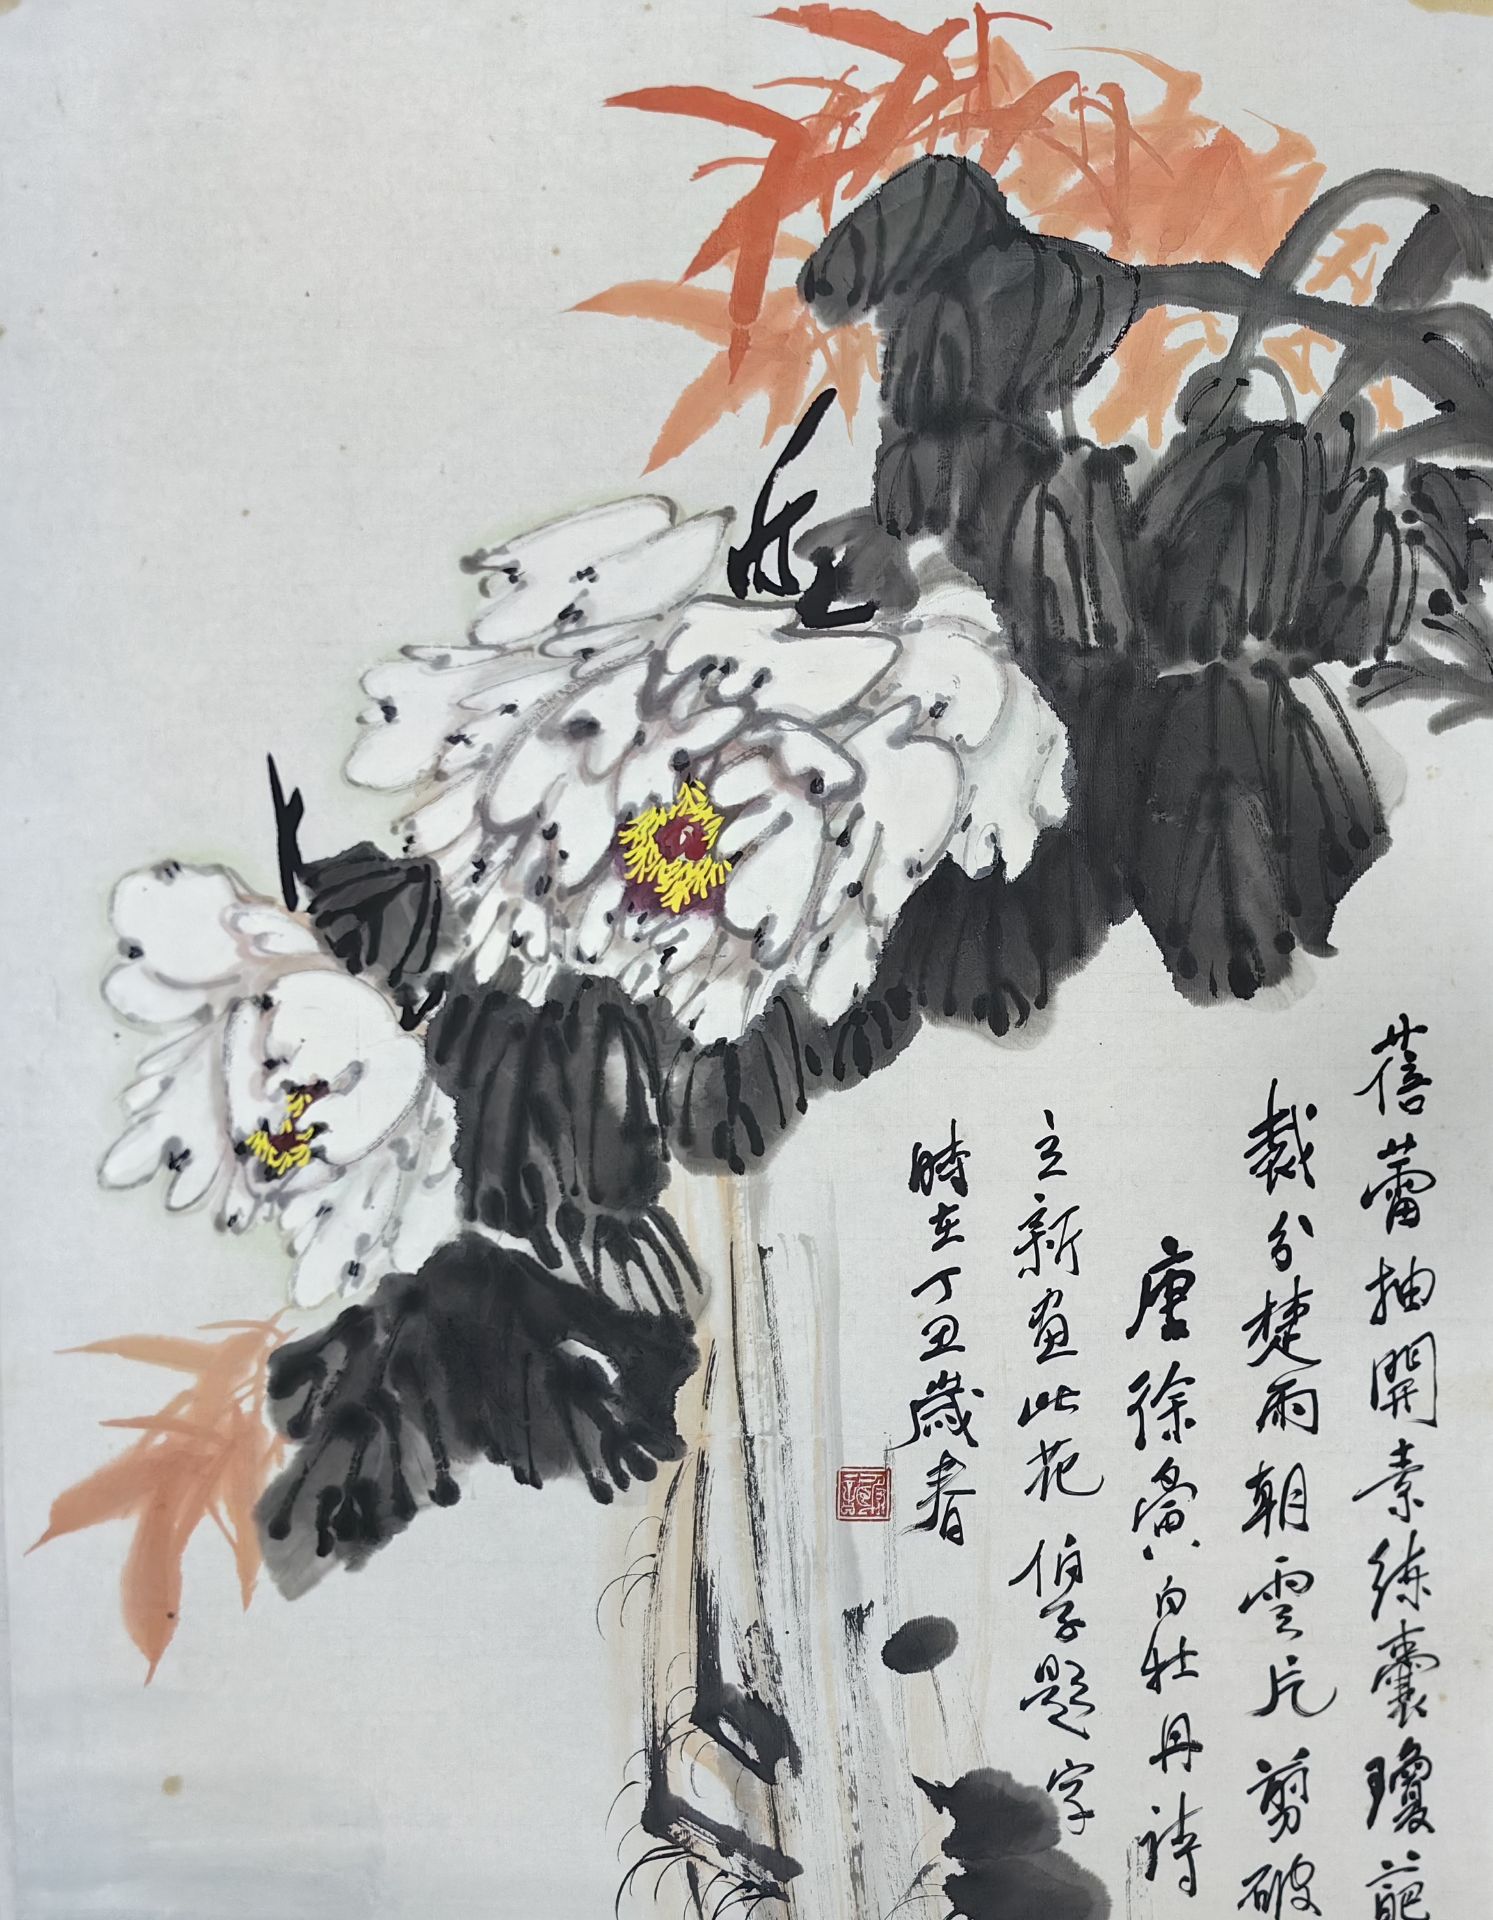 蓓蕾抽開素練囊瓊葩
裁分楚雨朝雲片剪破
唐徐夤白牡丹詩
立新畫此花伯子題字
時在丁丑歲春